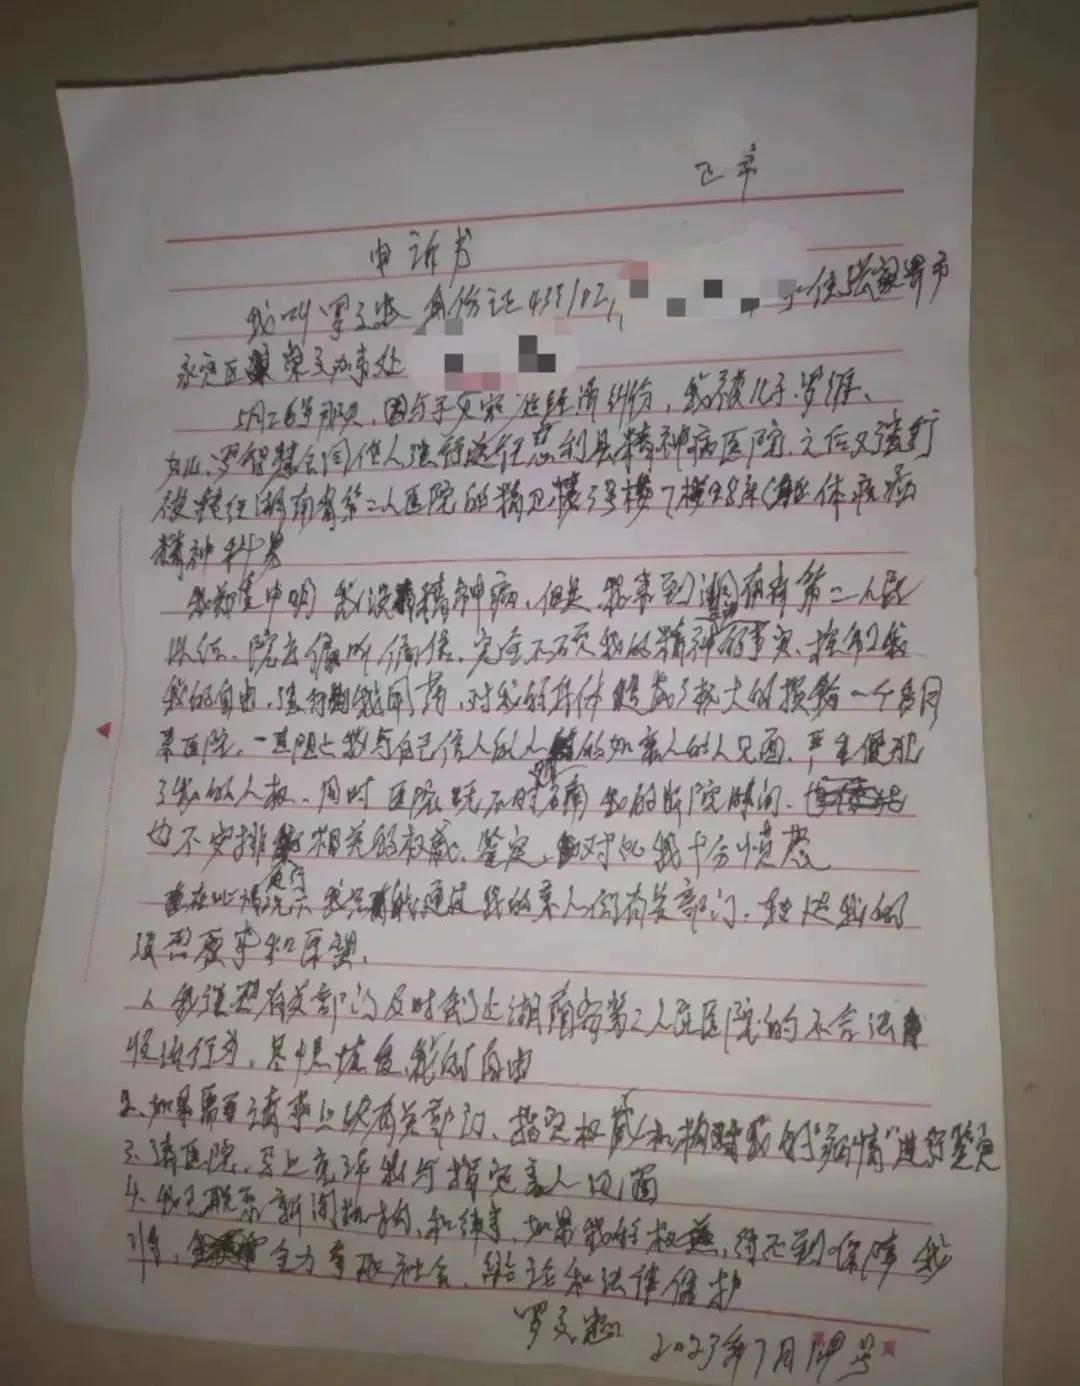 申诉书
我叫罗文 身份证433102 住张家界市
永定区 崇文办事处
5月26号那天，因与子女家庭经济纠纷，我被儿子罗维、
女儿罗智慧会同他人强行送往慈利县精神病医院，之后又强行
被转往湖南省第二人医院的 楼3号楼7楼 体疾病
精神科
我郑重申明 我没有精神病，但是 我来到湖南省第二人民
医院，院方偏听偏信，完全不顾我的精神 事实，控制了我
我的自由，强行 我用药，对我的身体造成了极大的损 一个多月
来医院，一直阻止我与自己信 的 的如亲人的人见面，严重侵犯
了我的人权，同时 医院既不 明确 我的出院时间，
也不安排 相关的权威 鉴定，对此我十分愤怒
在此情况下 我只能通过我的亲人向有关部门，转达我的
强烈要求和愿望。
1、我强烈 有关部门及时制止湖南省第二人民医院的不合法
收治行为，尽快恢复我的自由
2、如果需要请求上级有关部门，指定权威机构对我的“病情”进行鉴定
3、请医院，马上允许我与指定亲人见面
4、我已联系新闻机构，和律事，如果我的权益，得不到保障 我
将， 全力争取社会，舆论和法律保护
罗文 2023年7月 号
页